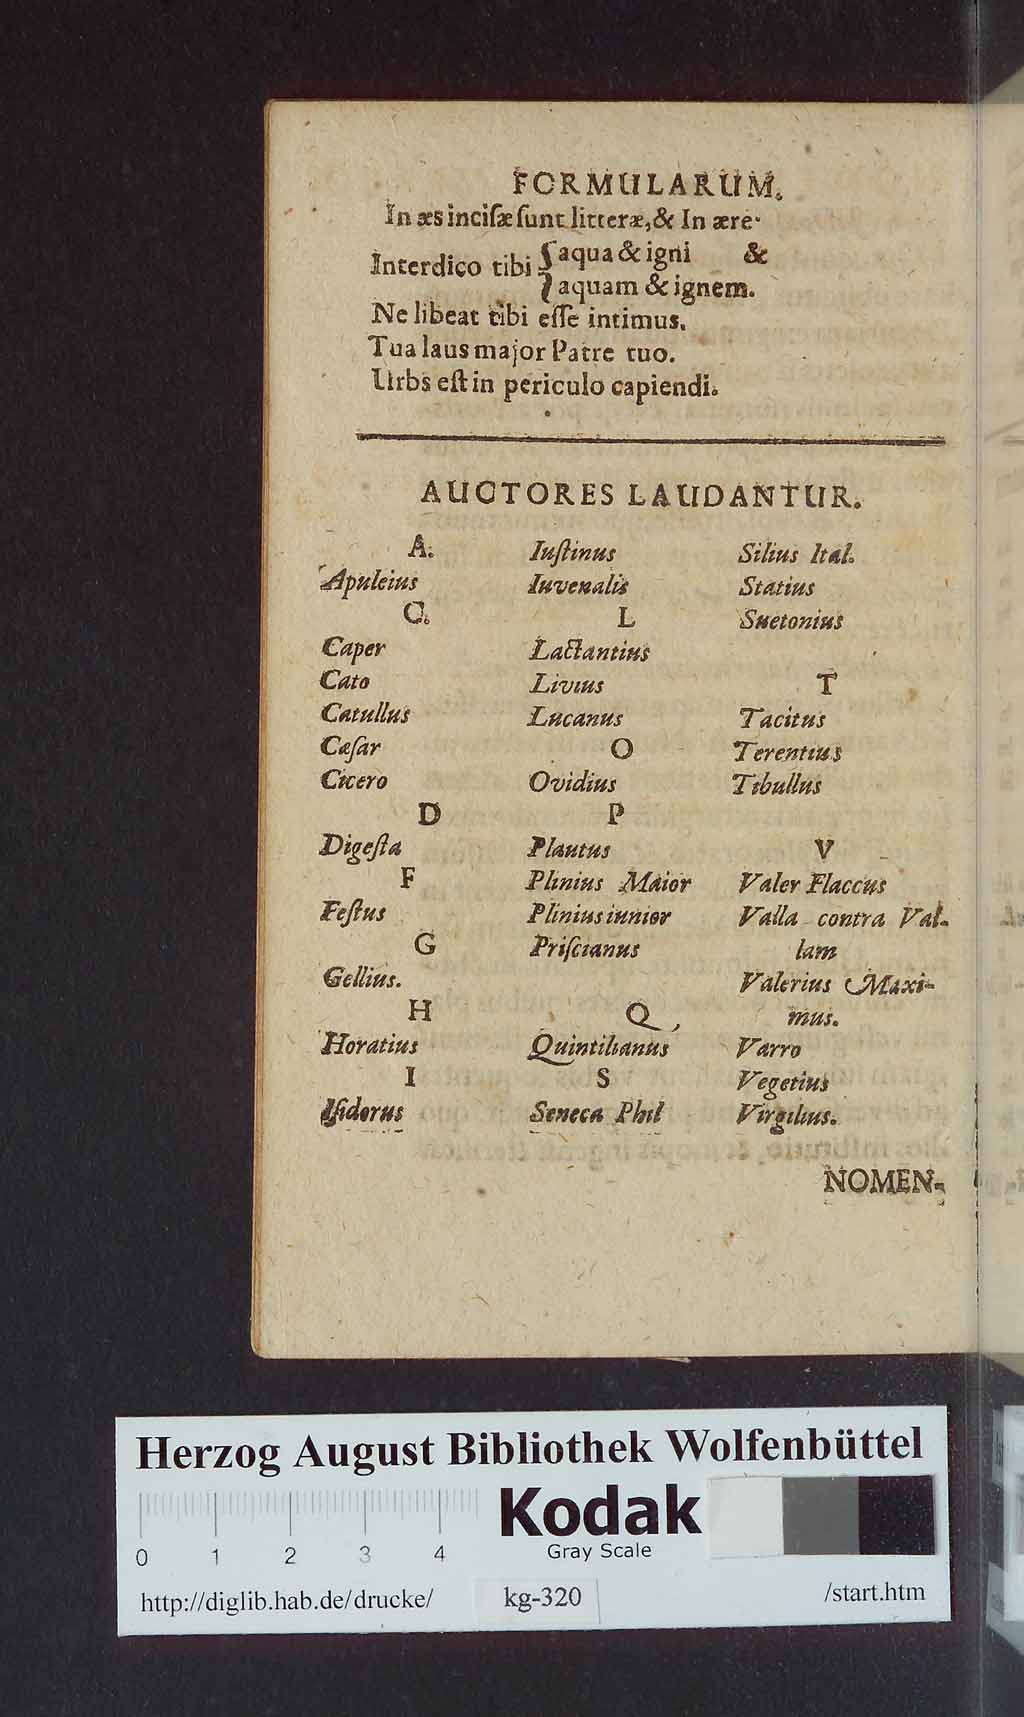 FORMULARUM.
In æs inciſæ ſunt litteræ, & In ære.
Interdico tibi { aqua & igni &
aquam & ignem.
Ne libeat tibi eſſe intimus.
Tua laus major Patre tuo.
Urbs eſt in periculo capiendi.
AUCTORES LAUDANTUR.
A.
Apuleius
C.
Caper
Cato
Catullus
Cæſar
Cicero
D
Digeſta
F
Feſtus
G
Gellius.
H
Horatius
I
Iſidorus
Iuſtinus
Iuvenalis
L
Lactantius
Livius
Lucanus
O
Ovidius
P
Plautus
Plinius Maior
Plinius iunior
Priſcianus
Q
Quintilianus
S
Seneca Phil
Silius Ital.
Statius
Suetonius
T
Tacitus
Terentius
Tibullus
V
Valer Flaccus
Valla contra Val-
lam
Valerius Maxi-
mus.
Varro
Vegetius
Virgilius.
NOMEN-
Herzog August Bibliothek Wolfenbüttel
Kodak
Gray Scale
0 1 2 3 4
http://diglib.hab.de/drucke/ kg-320 /start.htm